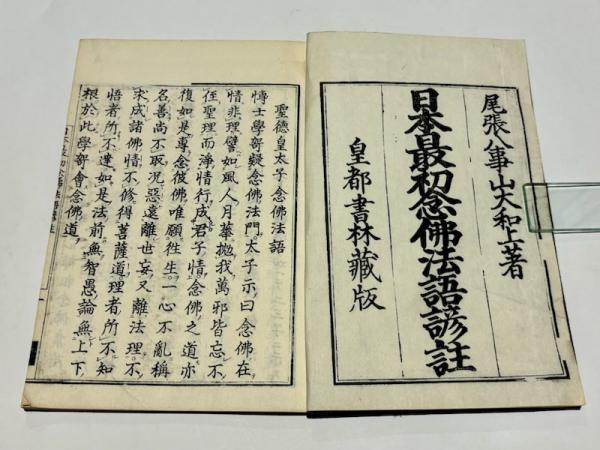 尾張八事山大和上著
日本最初念佛法語諺註
皇都書林藏版
聖德皇太子念佛法語
博士學哿疑念佛法門太子示曰念佛在
情非理譬如風人月華拋我萬邪皆忘不
侄聖理而淨情行成君子情念佛之道亦
復如是專念彼佛唯願往生一心不亂稱
名善尚不取况惡遠離也妄又離法理不
求成諸佛情不修得菩薩道理者所不知
悟者所不達如是法前無智愚論無上下
根於此學哿會念佛道